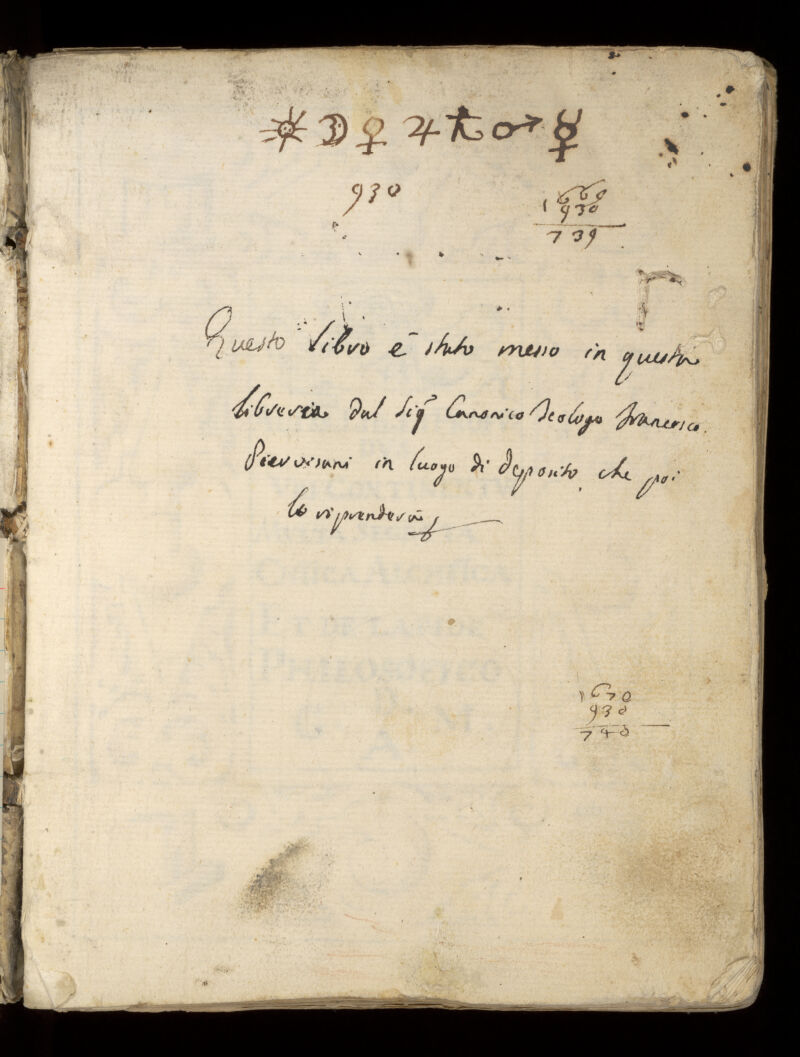 ☼ ☽ ♀ ♃ ♄ ♂ ☿
930
1669
930
739
Questo libro è stato messo in questa
libreria dal Sig.r Canonico Teologo Francesco
Piervisani in luogo di deposito che poi
lo riprenderà
1670
930
740
CHIRICA
ET DE LAPIDE
PHILOSOPHICO